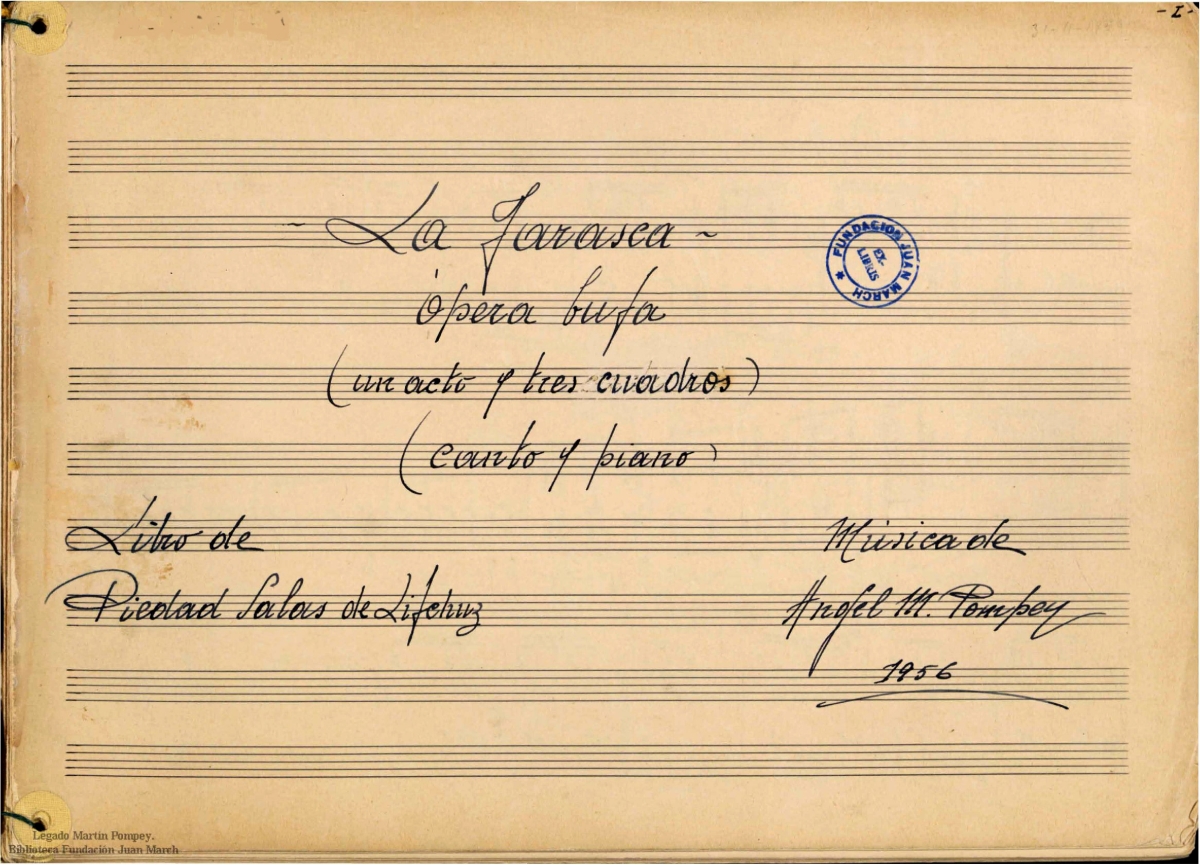 - I -
~ La Tarasca ~
Ópera bufa
(un acto y tres cuadros)
(canto y piano)
Libro de
Piedad Salas de Lifchuz
Música de
Angel M. Pompey
1956
FUNDACION JUAN MARCH
EX-
LIBRIS
Legado Martín Pompey.
Biblioteca Fundación Juan March